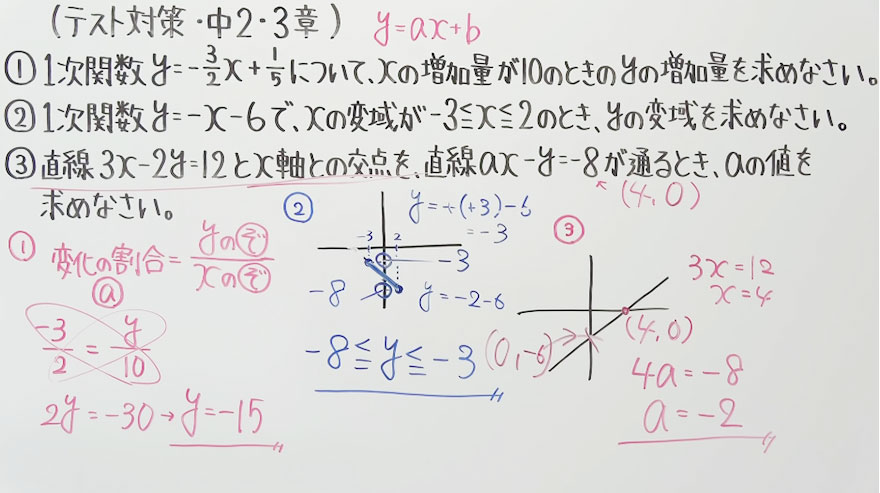 (テスト対策・中2・3章) y=ax+b
① 1次関数y=-3/2x+1/5について、xの増加量が10のときのyの増加量を求めなさい。
② 1次関数y=-x-6で、xの変域が-3≦x≦2のとき、yの変域を求めなさい。
③ 直線3x-2y=12とx軸との交点を、直線ax-y=-8が通るとき、aの値を
求めなさい。
(4,0)
①
変化の割合=yのぞ/xのぞ
a
-3/2=y/10
2y=-30→y=-15
②
-3 2
-3
-8
=-3
y=-2-6
-8≦y≦-3
③
3x=12
x=4
(4,0)
(0,-6)
4a=-8
a=-2